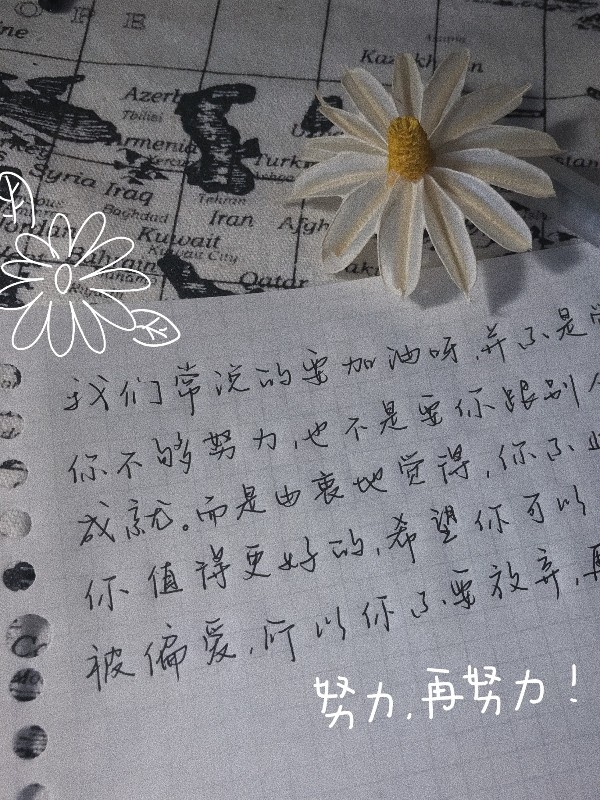 OPE
ine
Kazakhstan
Azerb
Tbilisi
Armenia
Turk
Syria
Iraq
Tehran
Baghdad
Iran
Afgh
Jordan
Kuwait
Kuwait City
Bahrain
Qatar
我们常说的要加油呀,并不是觉
你不够努力,也不是要你跟别
成就。而是由衷地觉得,你不
你值得更好的,希望你可以
被偏爱,所以你不要放弃,再
努力,再努力!